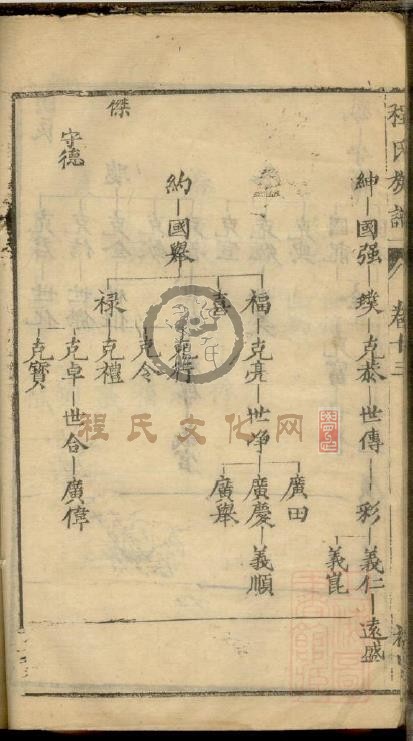 程氏族譜 卷十三
紳 國强 璞 克恭 世傳 彩 義仁 遠盛
義崑
廣田
約 國舉 福 克亮 世净 廣慶 義順
廣舉
喜 克行
克令
祿 克禮
傑
守德 克卓 世合 廣偉
克寶
程氏文化网